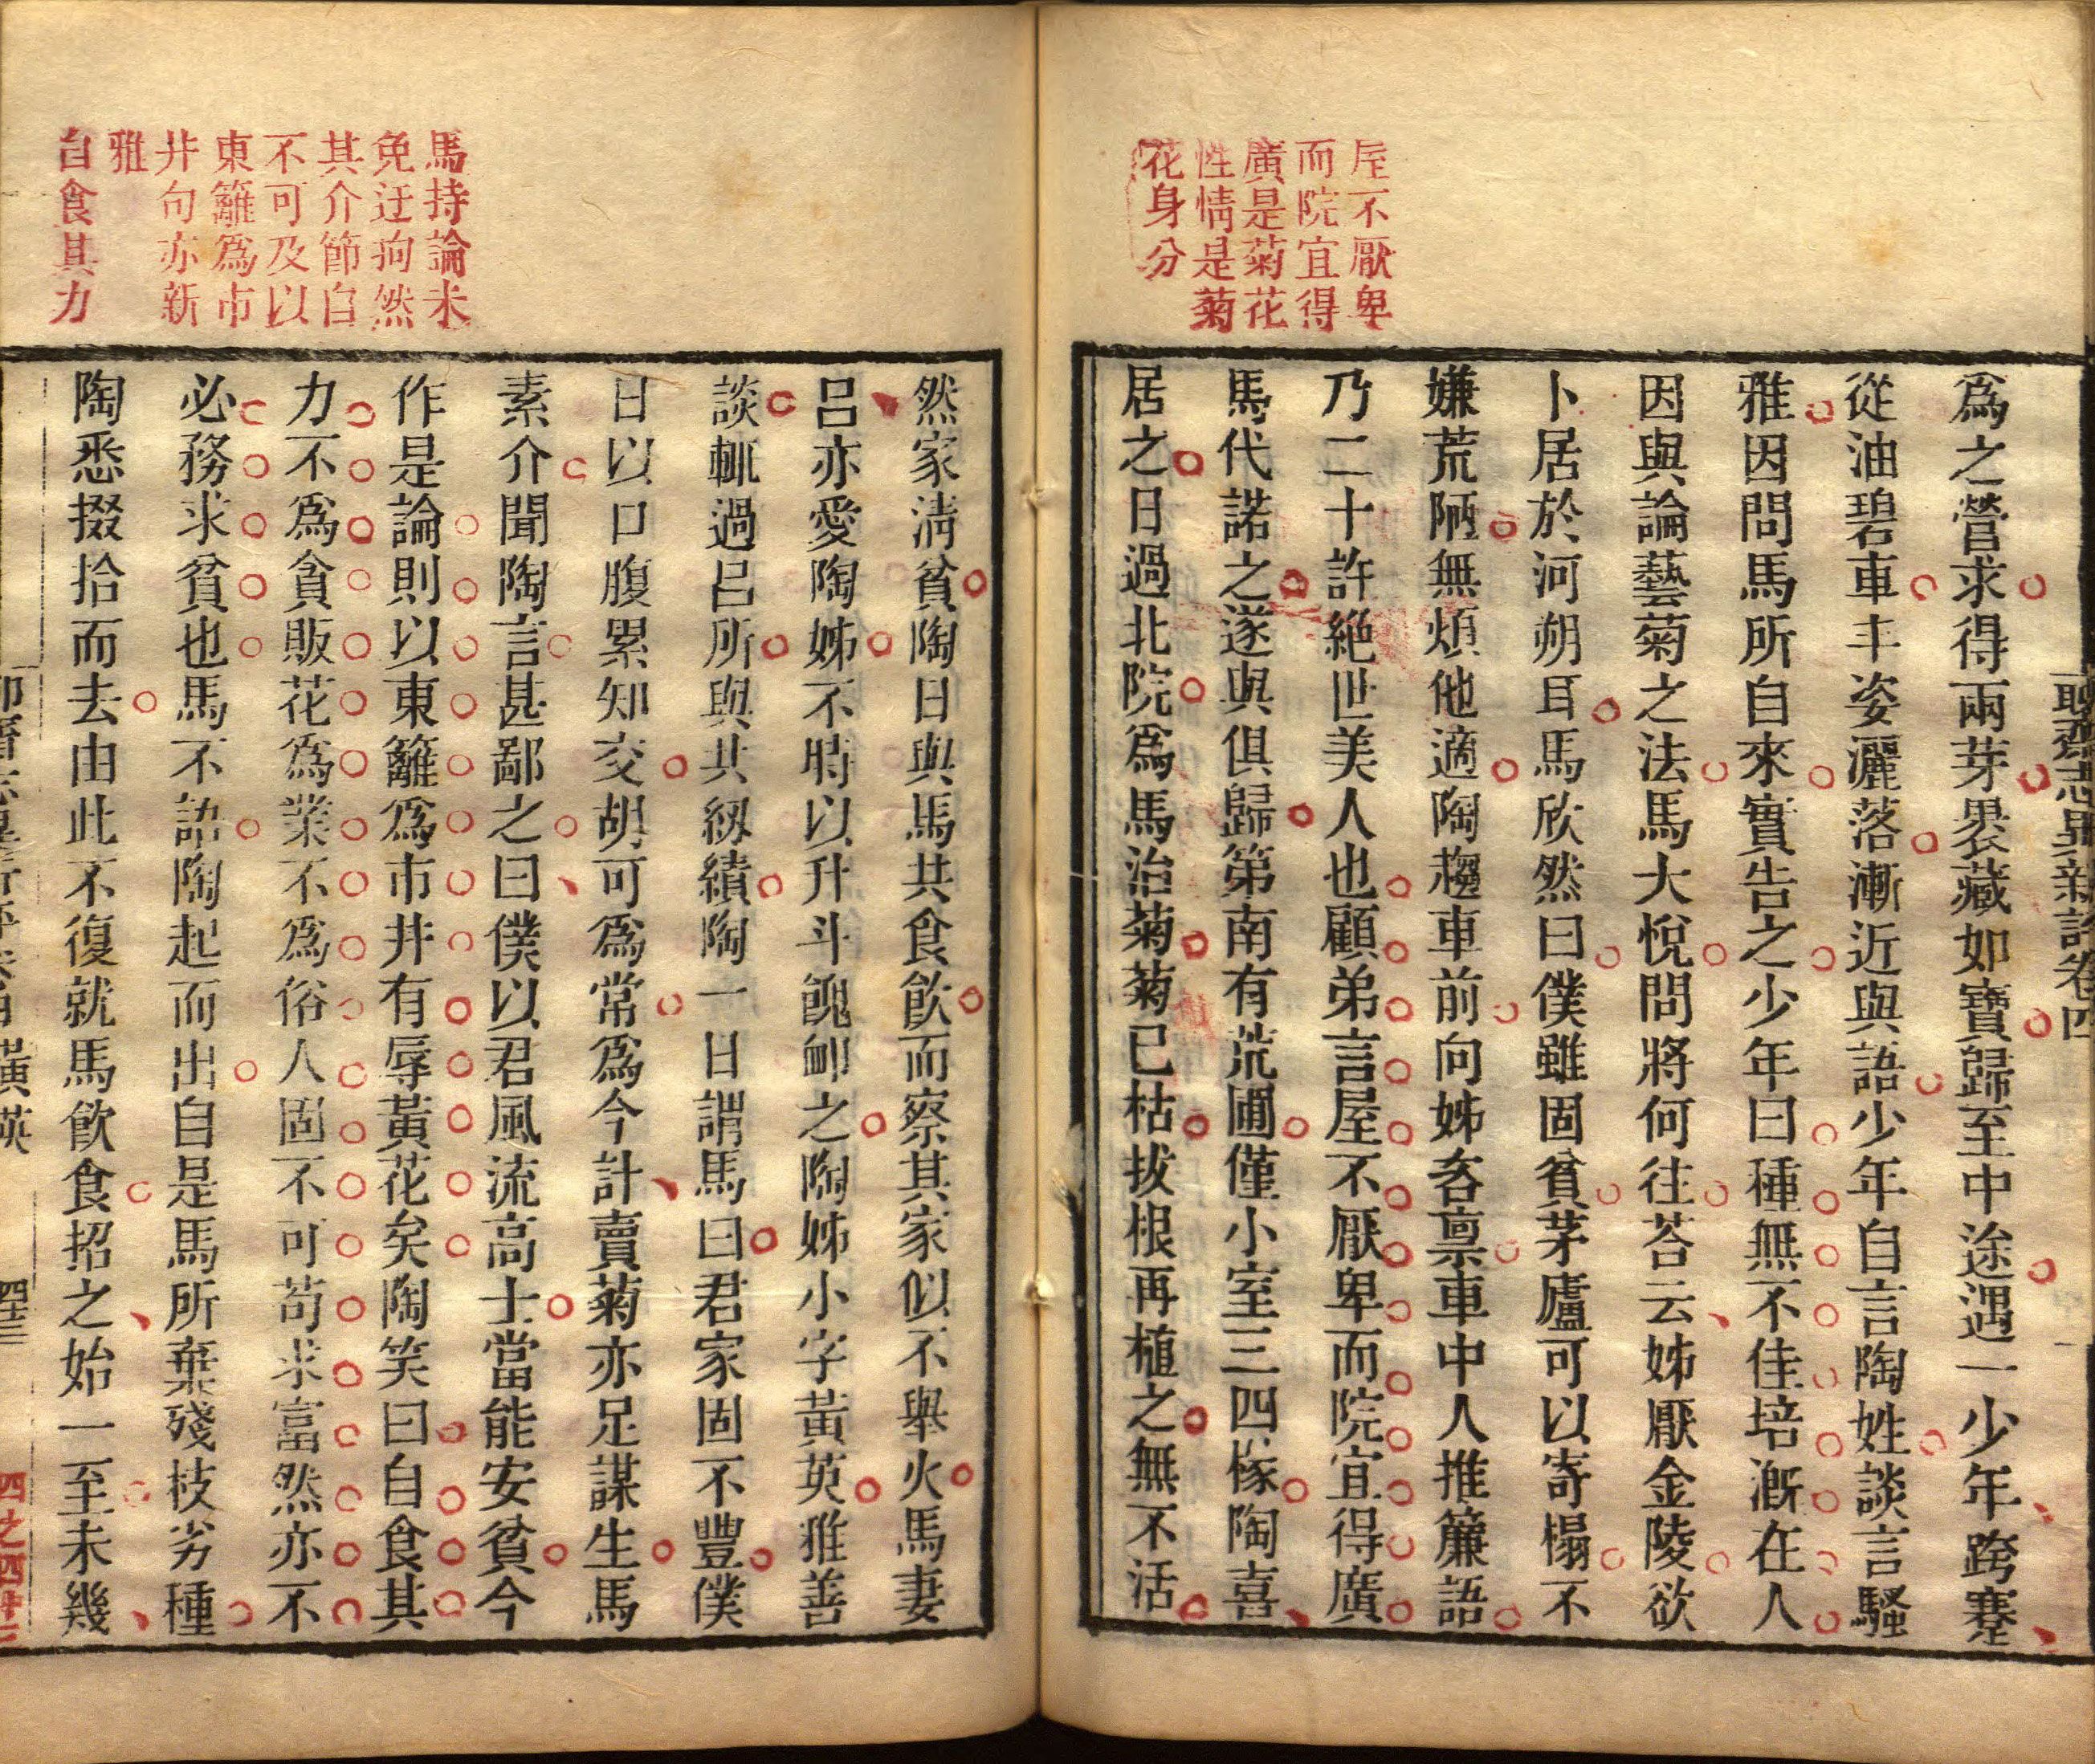 屋不厭卑
而院宜得
廣是菊花
性情是菊
花身分
聊齋志異新評卷四
爲之營求得兩芽褁藏如寶歸至中途遇一少年跨蹇
從油碧車丰姿灑落漸近與語少年自言陶姓談言騷
雅因問馬所自來實告之少年曰種無不佳培漑在人
因與論藝菊之法馬大悅問將何往荅云姊厭金陵欲
卜居於河朔耳馬欣然曰僕雖固貧茅廬可以寄榻不
嫌荒陋無煩他適陶趨車前向姊咨禀車中人推簾語
乃二十許絕世美人也顧弟言屋不厭卑而院宜得廣
馬代諾之遂與俱歸第南有荒圃僅小室三四椽陶喜
居之日過北院爲馬治菊菊已枯拔根再植之無不活
馬持論未
免迂拘然
其介節自
不可及以
東籬爲市
井句亦新
雅
自食其力
然家淸貧陶日與馬共食飮而察其家似不舉火馬妻
呂亦愛陶姊不時以升斗餽卹之陶姊小字黃英雅善
談輒過呂所與共紉績陶一日謂馬曰君家固不豐僕
日以口腹累知交胡可爲常爲今計賣菊亦足謀生馬
素介聞陶言甚鄙之曰僕以君風流高士當能安貧今
作是論則以東籬爲市井有辱黃花矣陶笑曰自食其
力不爲貪販花爲業不爲俗人固不可苟求富然亦不
必務求貧也馬不語陶起而出自是馬所棄殘枝劣種
陶悉掇拾而去由此不復就馬飮食招之始一至未幾
黃英
四之四十三